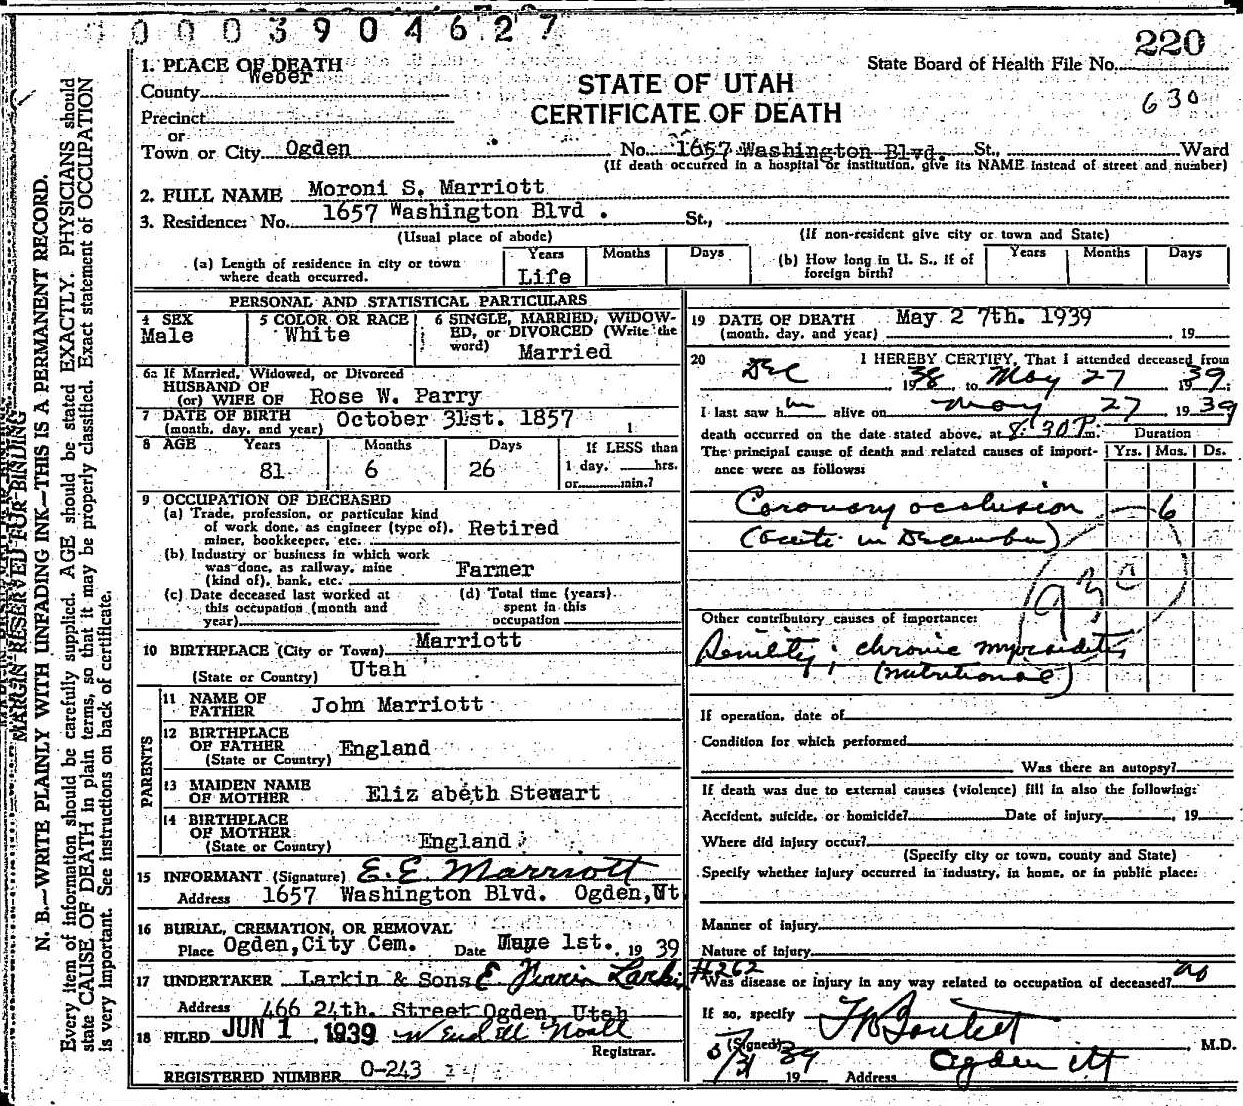 0003904627
220
State Board of Health File No.
630
1. PLACE OF DEATH
Weber
County
STATE OF UTAH
CERTIFICATE OF DEATH
Precinct
or
Town or City Ogden No. 1657 Washington Blvd. St., Ward
(If death occurred in a hospital or institution, give its NAME instead of street and number)
2. FULL NAME Moroni S. Marriott
3. Residence: No. 1657 Washington Blvd . St.,
(Usual place of abode) (If non-resident give city or town and State)
(a) Length of residence in city or town where death occurred. Years Life Months Days
(b) How long in U. S., if of foreign birth? Years Months Days
PERSONAL AND STATISTICAL PARTICULARS
4 SEX
Male
5 COLOR OR RACE
White
6 SINGLE, MARRIED, WIDOW-
ED, or DIVORCED (Write the
word) Married
6a If Married, Widowed, or Divorced
HUSBAND OF
(or) WIFE OF Rose W. Parry
7 DATE OF BIRTH
(month, day, and year) October 31st. 1857 1
8 AGE Years Months Days If LESS than
81 6 26 1 day, hrs.
or min.?
9 OCCUPATION OF DECEASED
(a) Trade, profession, or particular kind
of work done, as engineer (type of).
miner, bookkeeper, etc. Retired
(b) Industry or business in which work
was done, as railway, mine
(kind of), bank, etc. Farmer
(c) Date deceased last worked at
this occupation (month and
year)
(d) Total time (years).
spent in this
occupation
10 BIRTHPLACE (City or Town) Marriott
(State or Country) Utah
PARENTS
11 NAME OF
FATHER John Marriott
12 BIRTHPLACE
OF FATHER England
(State or Country)
13 MAIDEN NAME
OF MOTHER Eliz abeth Stewart
14 BIRTHPLACE
OF MOTHER
(State or Country) England
15 INFORMANT (Signature) E. E. Marriott
Address 1657 Washington Blvd. Ogden,Ut
16 BURIAL, CREMATION, OR REMOVAL
Place Ogden,City Cem. Date 1st. 1939
17 UNDERTAKER Larkin & Sons E. Larkin
Address 466 24th. Street Ogden, Utah
18 FILED JUN 1 , 1939 Wendell Noall
Registrar.
REGISTERED NUMBER 0-243
19 DATE OF DEATH May 2 7th. 1939
(month, day, and year) 19
20 I HEREBY CERTIFY, That I attended deceased from
Dec 1938, to May 27 1939
I last saw him alive on May 27 1939
death occurred on the date stated above, at 8:30 P. m. Duration
The principal cause of death and related causes of import-
ance were as follows: Yrs. Mos. Ds.
Coronary occlusion - 6
(Acute in December)
93c
Other contributory causes of importance:
Senility; chronic myocarditis
(nutritional)
If operation, date of
Condition for which performed
Was there an autopsy?
If death was due to external causes (violence) fill in also the following:
Accident, suicide, or homicide? Date of injury , 19
Where did injury occur?
(Specify city or town, county and State)
Specify whether injury occurred in industry, in home, or in public place:
Manner of injury
Nature of injury
#262
Was disease or injury in any way related to occupation of deceased? no
If so, specify
(Signed) , M.D.
5/31 39 19 Address Ogden Ut
MARGIN RESERVED FOR BINDING
N. B.—WRITE PLAINLY WITH UNFADING INK—THIS IS A PERMANENT RECORD.
Every item of information should be carefully supplied. AGE should be stated EXACTLY. PHYSICIANS should
state CAUSE OF DEATH in plain terms, so that it may be properly classified. Exact statement of OCCUPATION
is very important. See instructions on back of certificate.